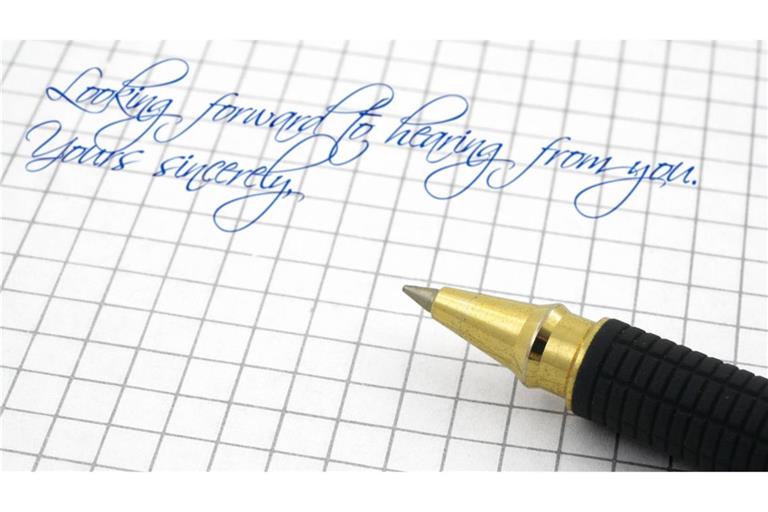 Looking forward to hearing from you.
Yours sincerely,